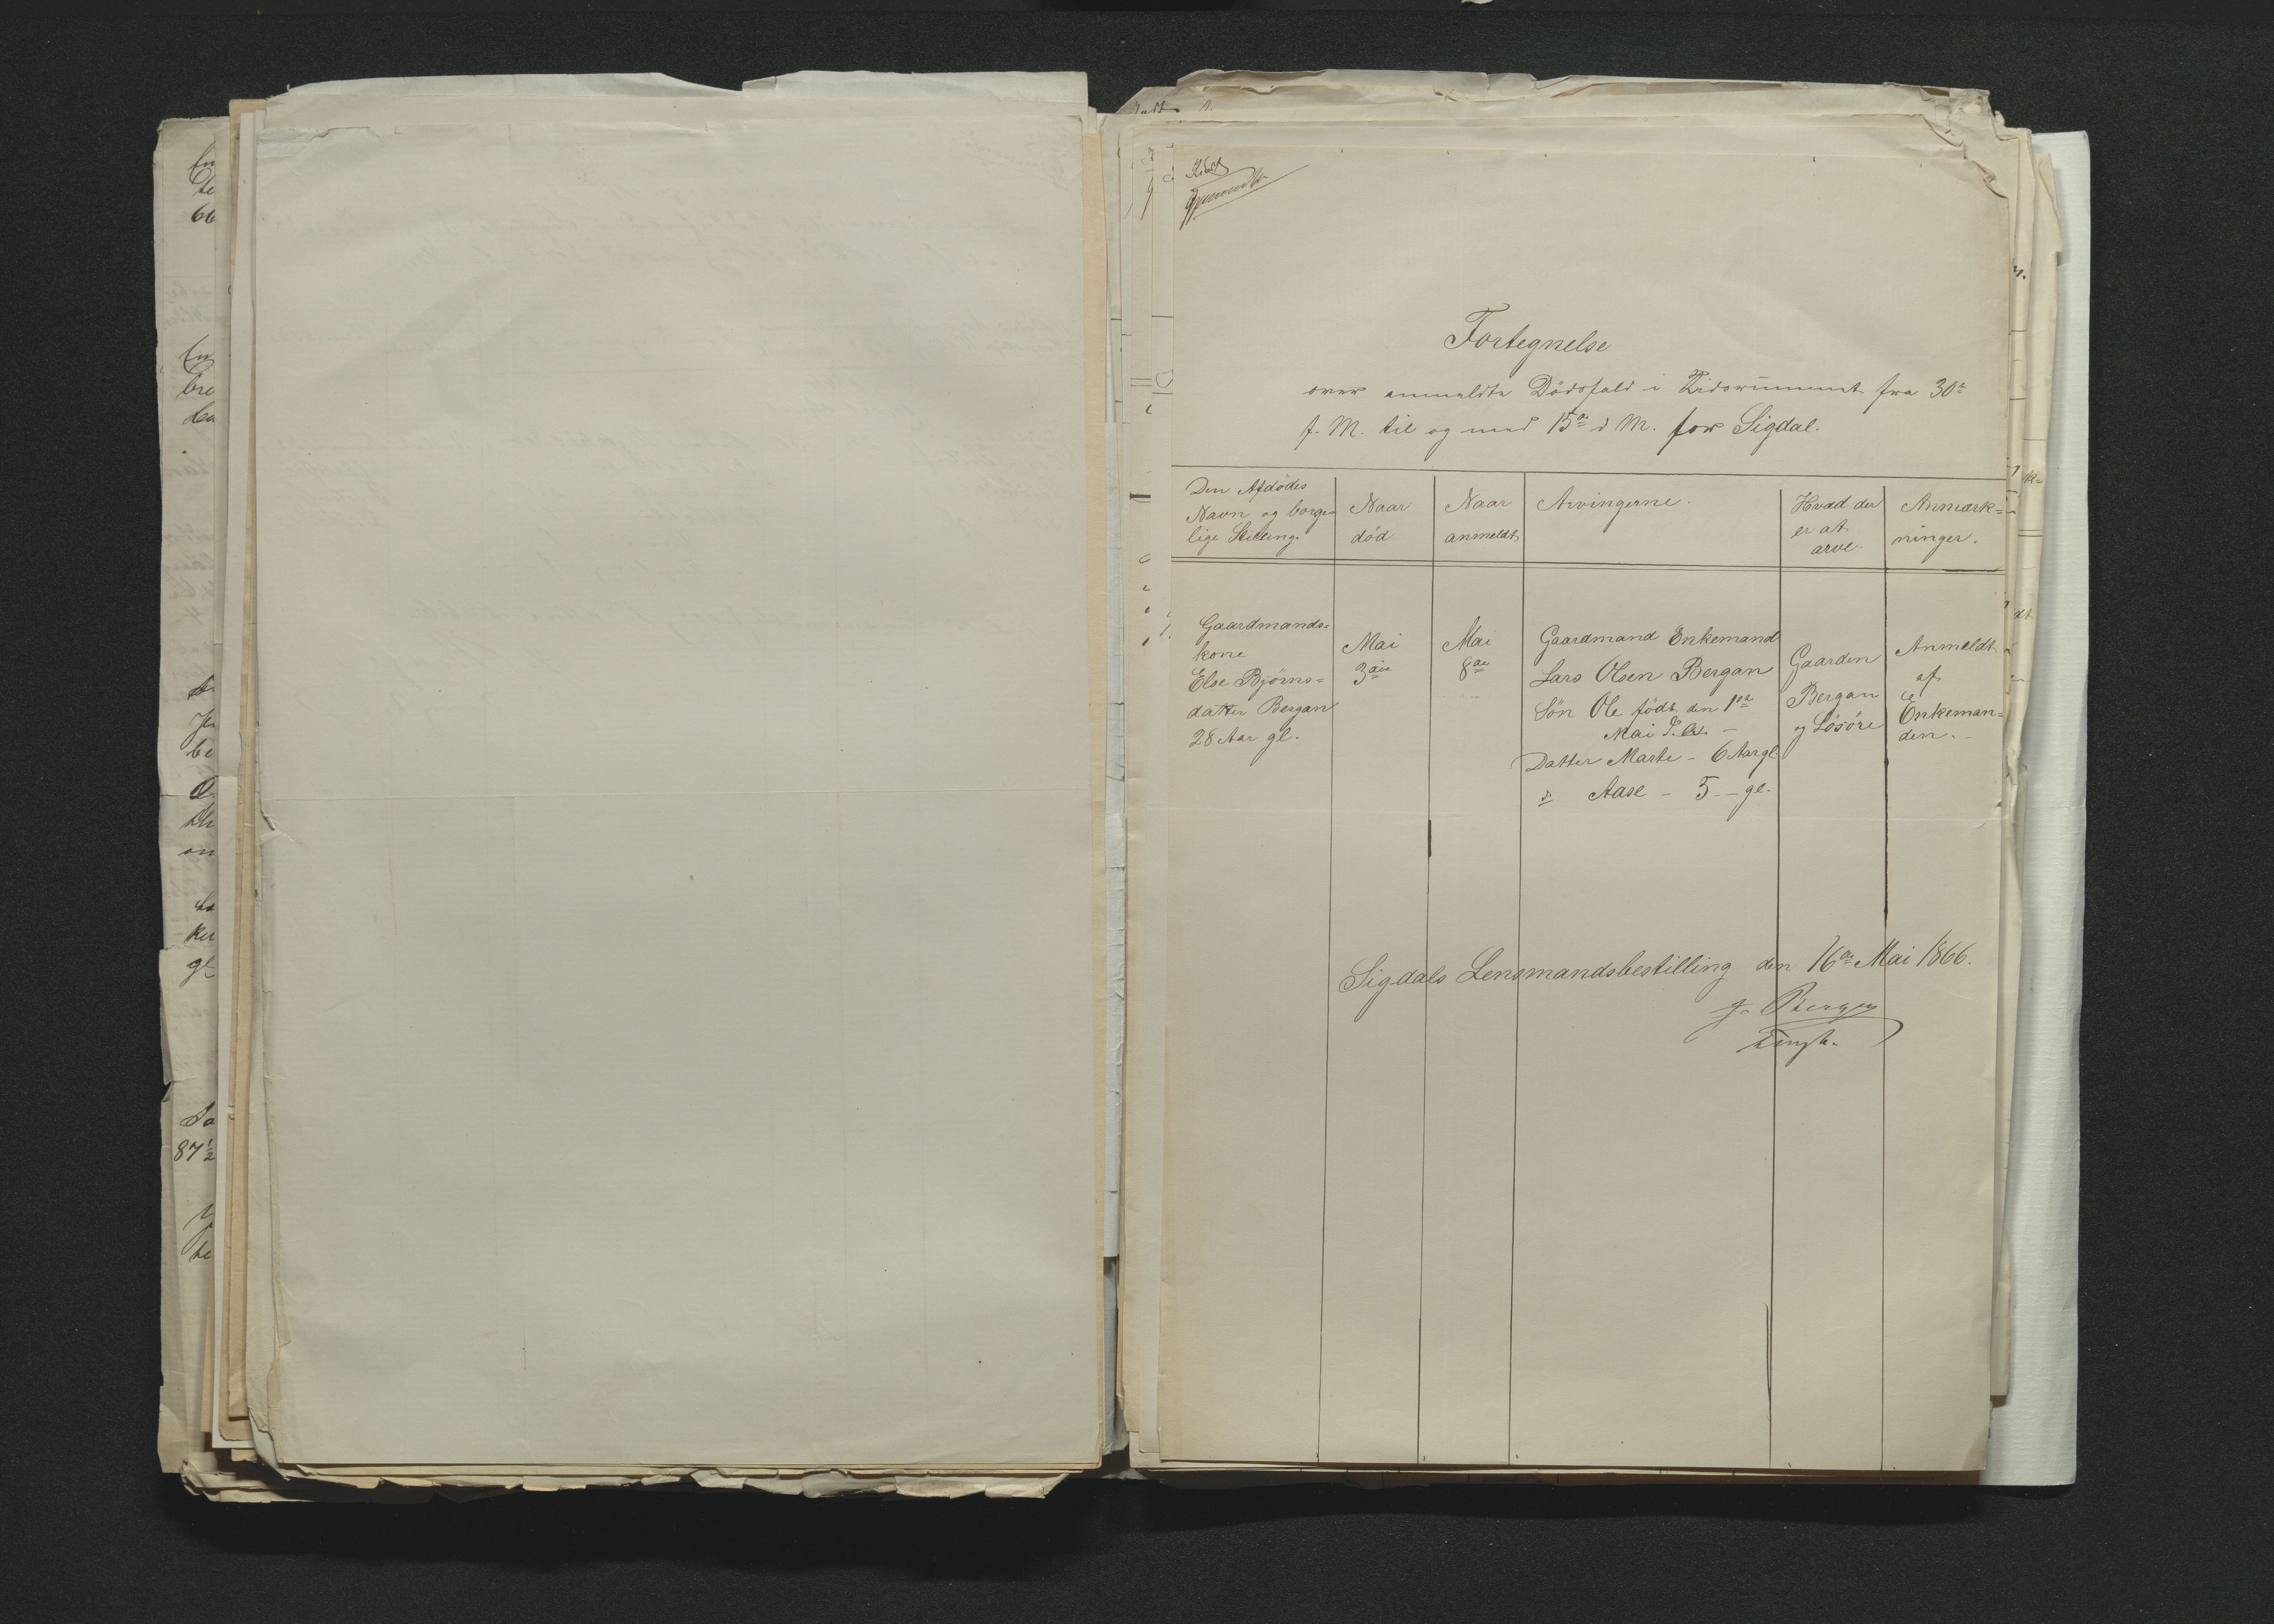 Fortegnelse
over anmeldte Dödsfald i Tidsrummet fra 30te
f. M. til og med 15de d M. for Sigdal.
Den Afdödes
Navn og borger=
lige Stilling.
Naar
död
Naar
anmeldt
Arvingerne.
Hvad der
er at
arve.
Anmærk=
ninger.
1.
Gaardmands=
kone
Else Bjørns=
datter Bergan
28 Aar gl.
Mai
3die
Mai
8de
Gaardmand Enkemand
Lars Olsen Bergan
Sön Ole födt den 1ste
Mai
Datter Marte - 6 Aar gl.
d. Aase - 5 - - gl.
Gaarden
Bergan
og Lösöre
Anmeldt
af
Enkeman=
den. -
Sigdals Lensmandsbestilling den 16de Mai 1866.
87 1/2